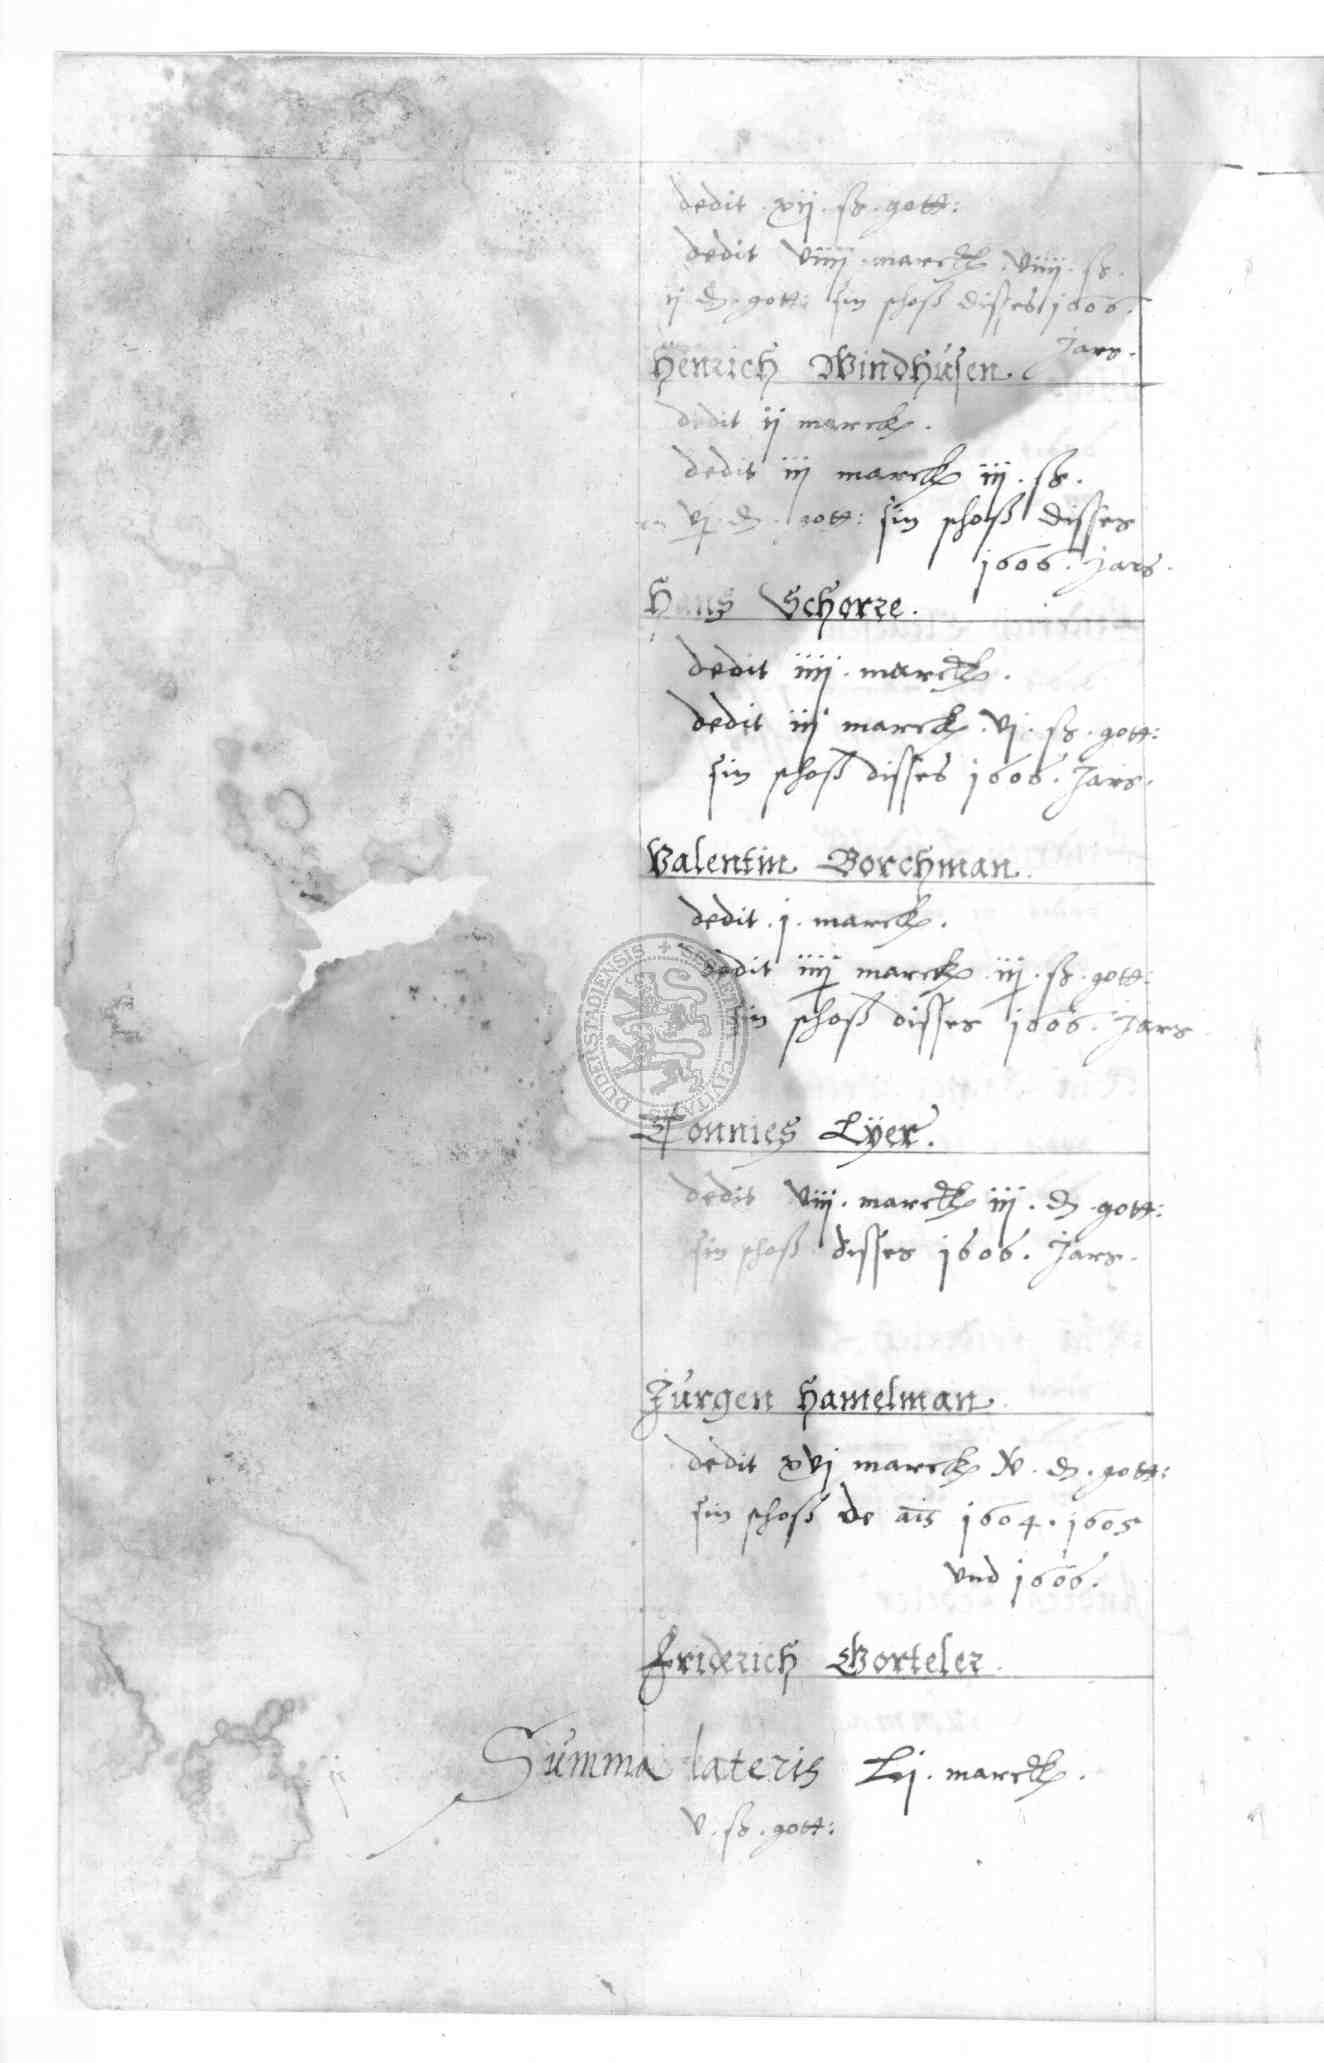 dedit xij ß gott:
dedit viiij marck viiij ß
ij d gott: sin schoß disses 1606.
Jars.
Henrich Windhusen.
dedit ij marck.
dedit iij marck iij ß.
vj d gott: sin schoß disses
1606. Jars.
Hans Schorze.
dedit iiij marck.
dedit iij marck vj ß gott:
sin schoß disses 1606. Jars.
Valentin Borchman.
dedit j marck.
dedit iiij marck iij ß gott:
sin schoß disses 1606. Jars
Tonnies Lÿer.
dedit viij marck iij d gott:
sin schoß disses 1606. Jars.
Jurgen Hamelman.
dedit xvj marck xv d gott:
sin schoß de ais 1604. 1605
vnd 1606.
Friderich Gorteler.
Summa lateris Lj marck.
v ß gott:
DUDERSTADIENSIS CIVITATIS